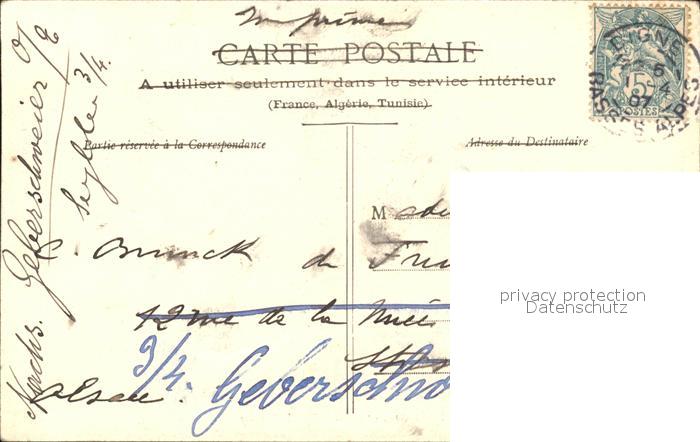 Imprimé
CARTE POSTALE
A utiliser seulement dans le service intérieur
(France, Algérie, Tunisie).
Partie réservée à la Correspondance
Adresse du Destinataire
DIGNE
BASSES ALPES
15
POSTES
M
Brunck de
12 rue de la Nuée
3/4. Geberschw
Alsace.
Nachs. Geberschweier O/E
3/4.
privacy protection
Datenschutz